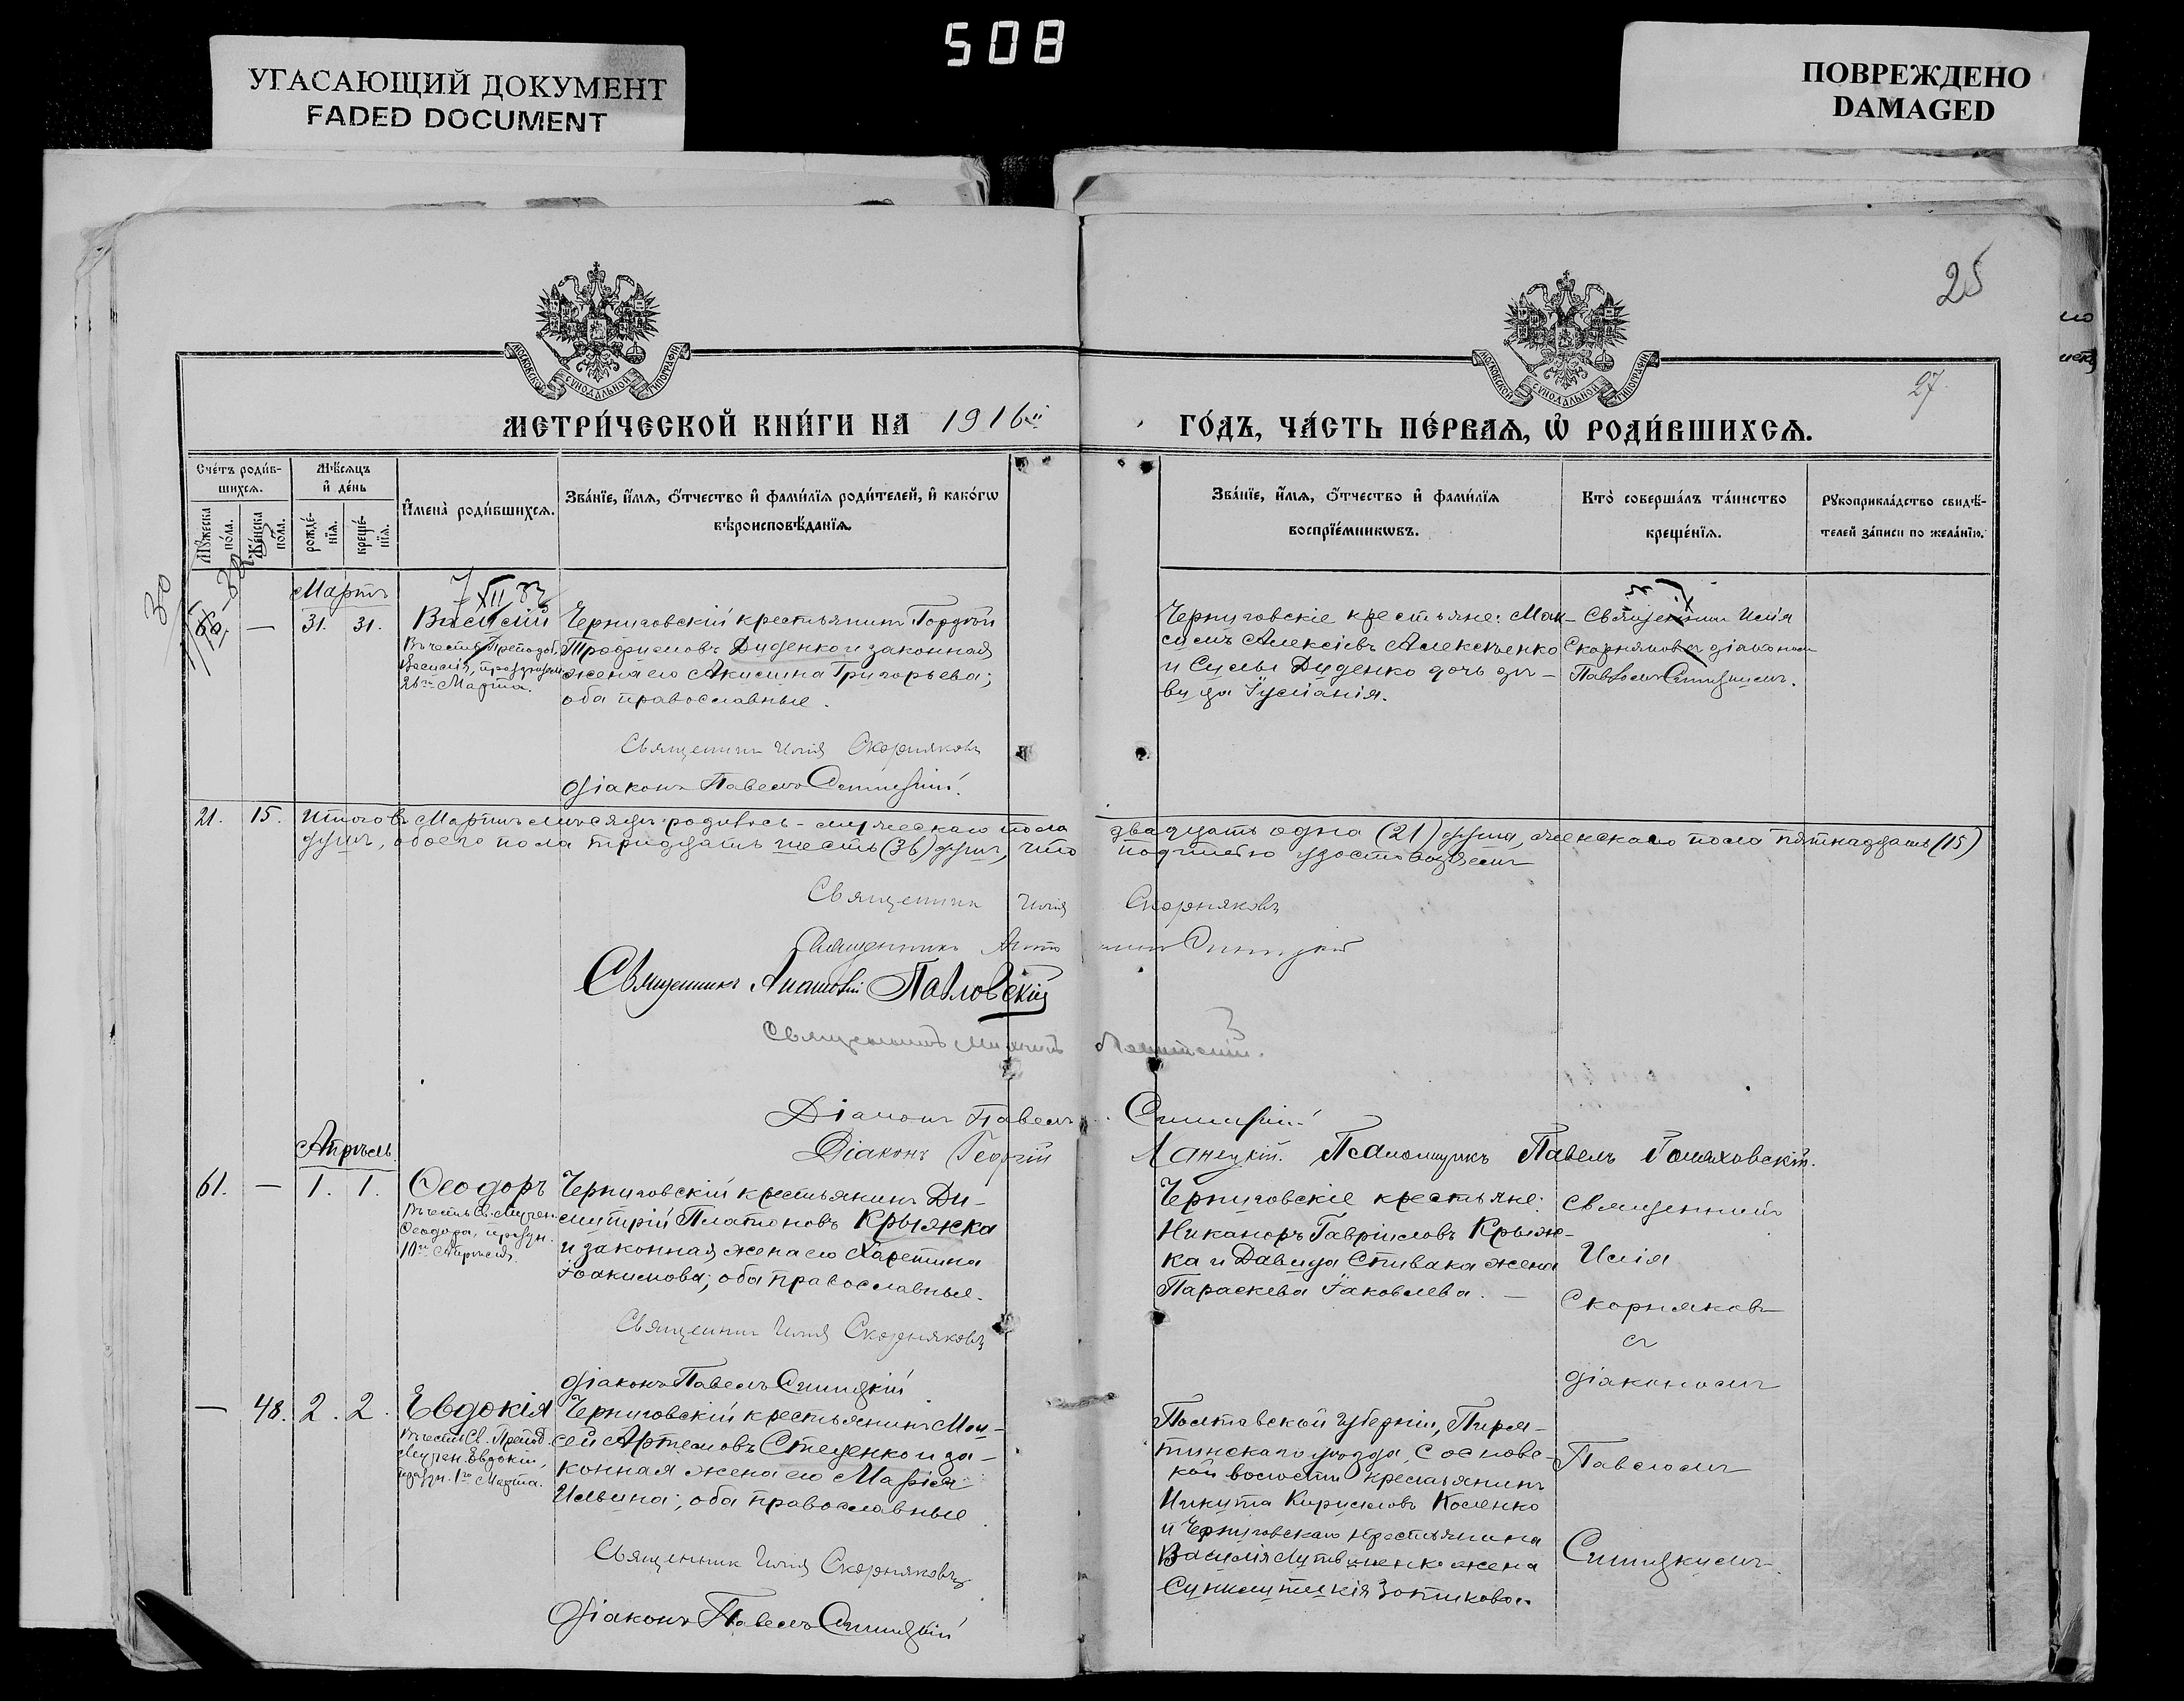 508
УГАСАЮЩИЙ ДОКУМЕНТ
FADED DOCUMENT
ПОВРЕЖДЕНО
DAMAGED
25
27
МОСКОВСКОЙ СѴНОДАЛЬНОЙ ТИПОГРАФІИ
МОСКОВСКОЙ СѴНОДАЛЬНОЙ ТИПОГРАФІИ
МЕТРИ́ЧЕСКОЙ КНИ́ГИ НА 1916й
ГО́ДЪ, ЧА́СТЬ ПЕ́РВАЯ, Ѽ РОДИ́ВШИХСЯ.
Сче́тъ роди́в-
шихся.
Мѣ́сяцъ
и҆ де́нь
Мꙋ́жеска
по́ла.
Же́нска
по́ла.
рожде́-
нїя.
креще́-
нїя.
И҆мена̀ роди́вшихся.
Зва́нїе, и҆́мя, ѻ҆́тчество и҆ фами́лїя роди́телей, и҆ како́гѡ
вѣроисповѣ́данїя.
Зва́нїе, и҆́мя, ѻ҆́тчество и҆ фами́лїя
воспрїе́мникѡвъ.
Кто̀ соверша́лъ та́инство
креще́нїя.
Рꙋкоприкла́дство свидѣ́-
телей за́писи по жела́нїю.
30
Мартъ
7 XII 83
— 31. 31. Василій
Въ честь Преподоб.
Василія, празднуем.
26го Марта.
Черниговскій крестьянинъ Гордѣй
Трофимовъ Диденко и законная
жена его Акилина Григорьева;
оба православные.
Священникъ Илія Скорняковъ
Діаконъ Павелъ Синицкій.
Черниговскіе крестьяне: Мак-
симъ Алексіевъ Алексѣенко
и Силы Диденко дочь дѣ-
вица Іуліанія.
Священникъ Илія
Скорняковъ съ діакономъ
Павломъ Синицкимъ.
21. 15. Итого въ Мартѣ мѣсяцѣ родилось - мужескаго пола двадцать одна (21) душа, женскаго пола пятнадцать (15)
душъ, обоего пола тридцать шесть (36) душъ, что подписью удостовѣряемъ
Священникъ Илія Скорняковъ
Священникъ Синицкій
Священникъ Анатолій Павловскій
Священникъ
Діаконъ Павелъ Синицкій
Діаконъ Георгій Ланецкій. Псаломщикъ Павелъ
Апрѣль.
61. — 1. 1. Ѳеодоръ
Въ честь Св. Мучен.
Ѳеодора, праздн.
10го Апрѣля.
Черниговскій крестьянинъ Ди-
митрій Платоновъ Крыжка
и законная жена его Харитина
Іоакимова; оба православные.
Священникъ Илія Скорняковъ
Діаконъ Павелъ Синицкій
Черниговскіе крестьяне:
Никаноръ Гавріиловъ Крыж-
ка и Давида Спивака жена
Параскева Іаковлева. —
Священникъ
Илія
Скорняковъ
съ
діакономъ
— 48. 2. 2. Евдокія
Въ честь Св. Препод.
Мучен. Евдокіи,
праздн. 1го Марта.
Черниговскій крестьянинъ Мои-
сей Артемовъ Стеценко и за-
конная жена его Марія
Ильина; оба православные.
Священникъ Илія Скорняковъ
Діаконъ Павелъ Синицкій
Полтавской губерніи, Пиря-
тинскаго уѣзда, Сосновс-
кой волости крестьянинъ
Никита Кирилловъ Косенко
и Черниговскаго крестьянина
Василія Литвиненко жена
Синклитикія Зотикова.
Павломъ
Синицкимъ.